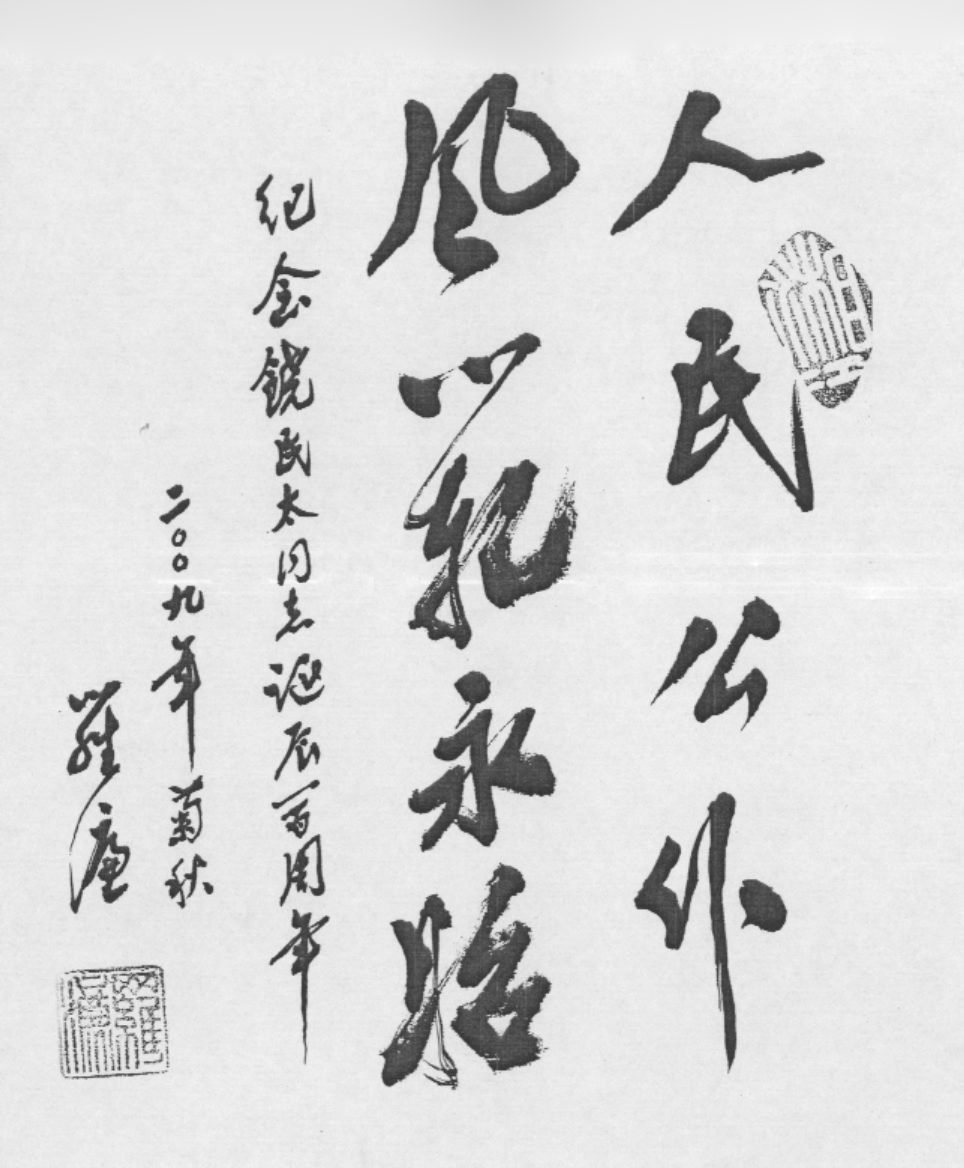 人民公仆
风範永昭
纪念饶民太同志诞辰百周年
二〇〇九年菊秋
羅廉